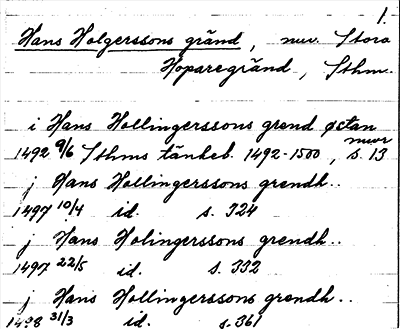 1.
Hans Holgerssons gränd, nuv. Stora
Hoparegränd, Sthm.
i Hans Hollingerssons grend østan
mwr
1492 9/6 Sthms tänkeb. 1492-1500, s. 13
j Hans Hollingerssons grendh..
1497 10/4 id. s. 324
j Hans Holingerssons grendh..
1497 22/5 id. s. 332
j Hans Hollingerssons grendh..
1498 31/3 id. s. 361